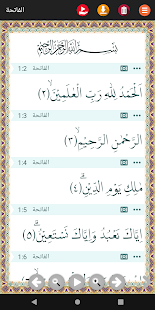 الفاتحة
بِسْمِ اللَّهِ الرَّحْمَٰنِ الرَّحِيمِ
1:2 الفاتحة
الْحَمْدُ لِلَّهِ رَبِّ الْعَٰلَمِينَ ﴿٢﴾
1:3 الفاتحة
الرَّحْمَٰنِ الرَّحِيمِ ﴿٣﴾
1:4 الفاتحة
مَٰلِكِ يَوْمِ الدِّينِ ﴿٤﴾
1:5 الفاتحة
إِيَّاكَ نَعْبُدُ وَإِيَّاكَ نَسْتَعِينُ ﴿٥﴾
1:6 الفاتحة